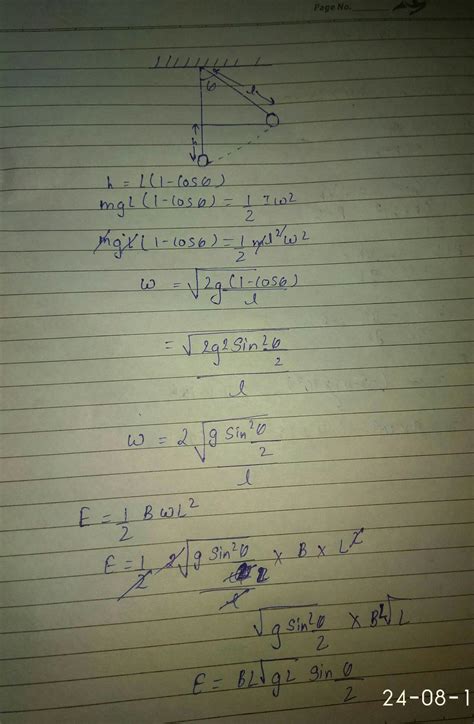 Page No.
θ l
h
h = l(1-cosθ)
mgl(1-cosθ) = 1/2 Iω²
mgl(1-cosθ) = 1/2 ml²ω²
ω = √(2g(1-cosθ)/l)
= √(2g2Sin²θ/2 / l)
ω = 2√(g Sin²θ/2 / l)
E = 1/2 BωL²
E = 1/2 2√(g Sin²θ/2 / l) × B × L²
√(g Sin²θ/2) × BL√L
E = BL√gL Sin θ/2
24-08-1